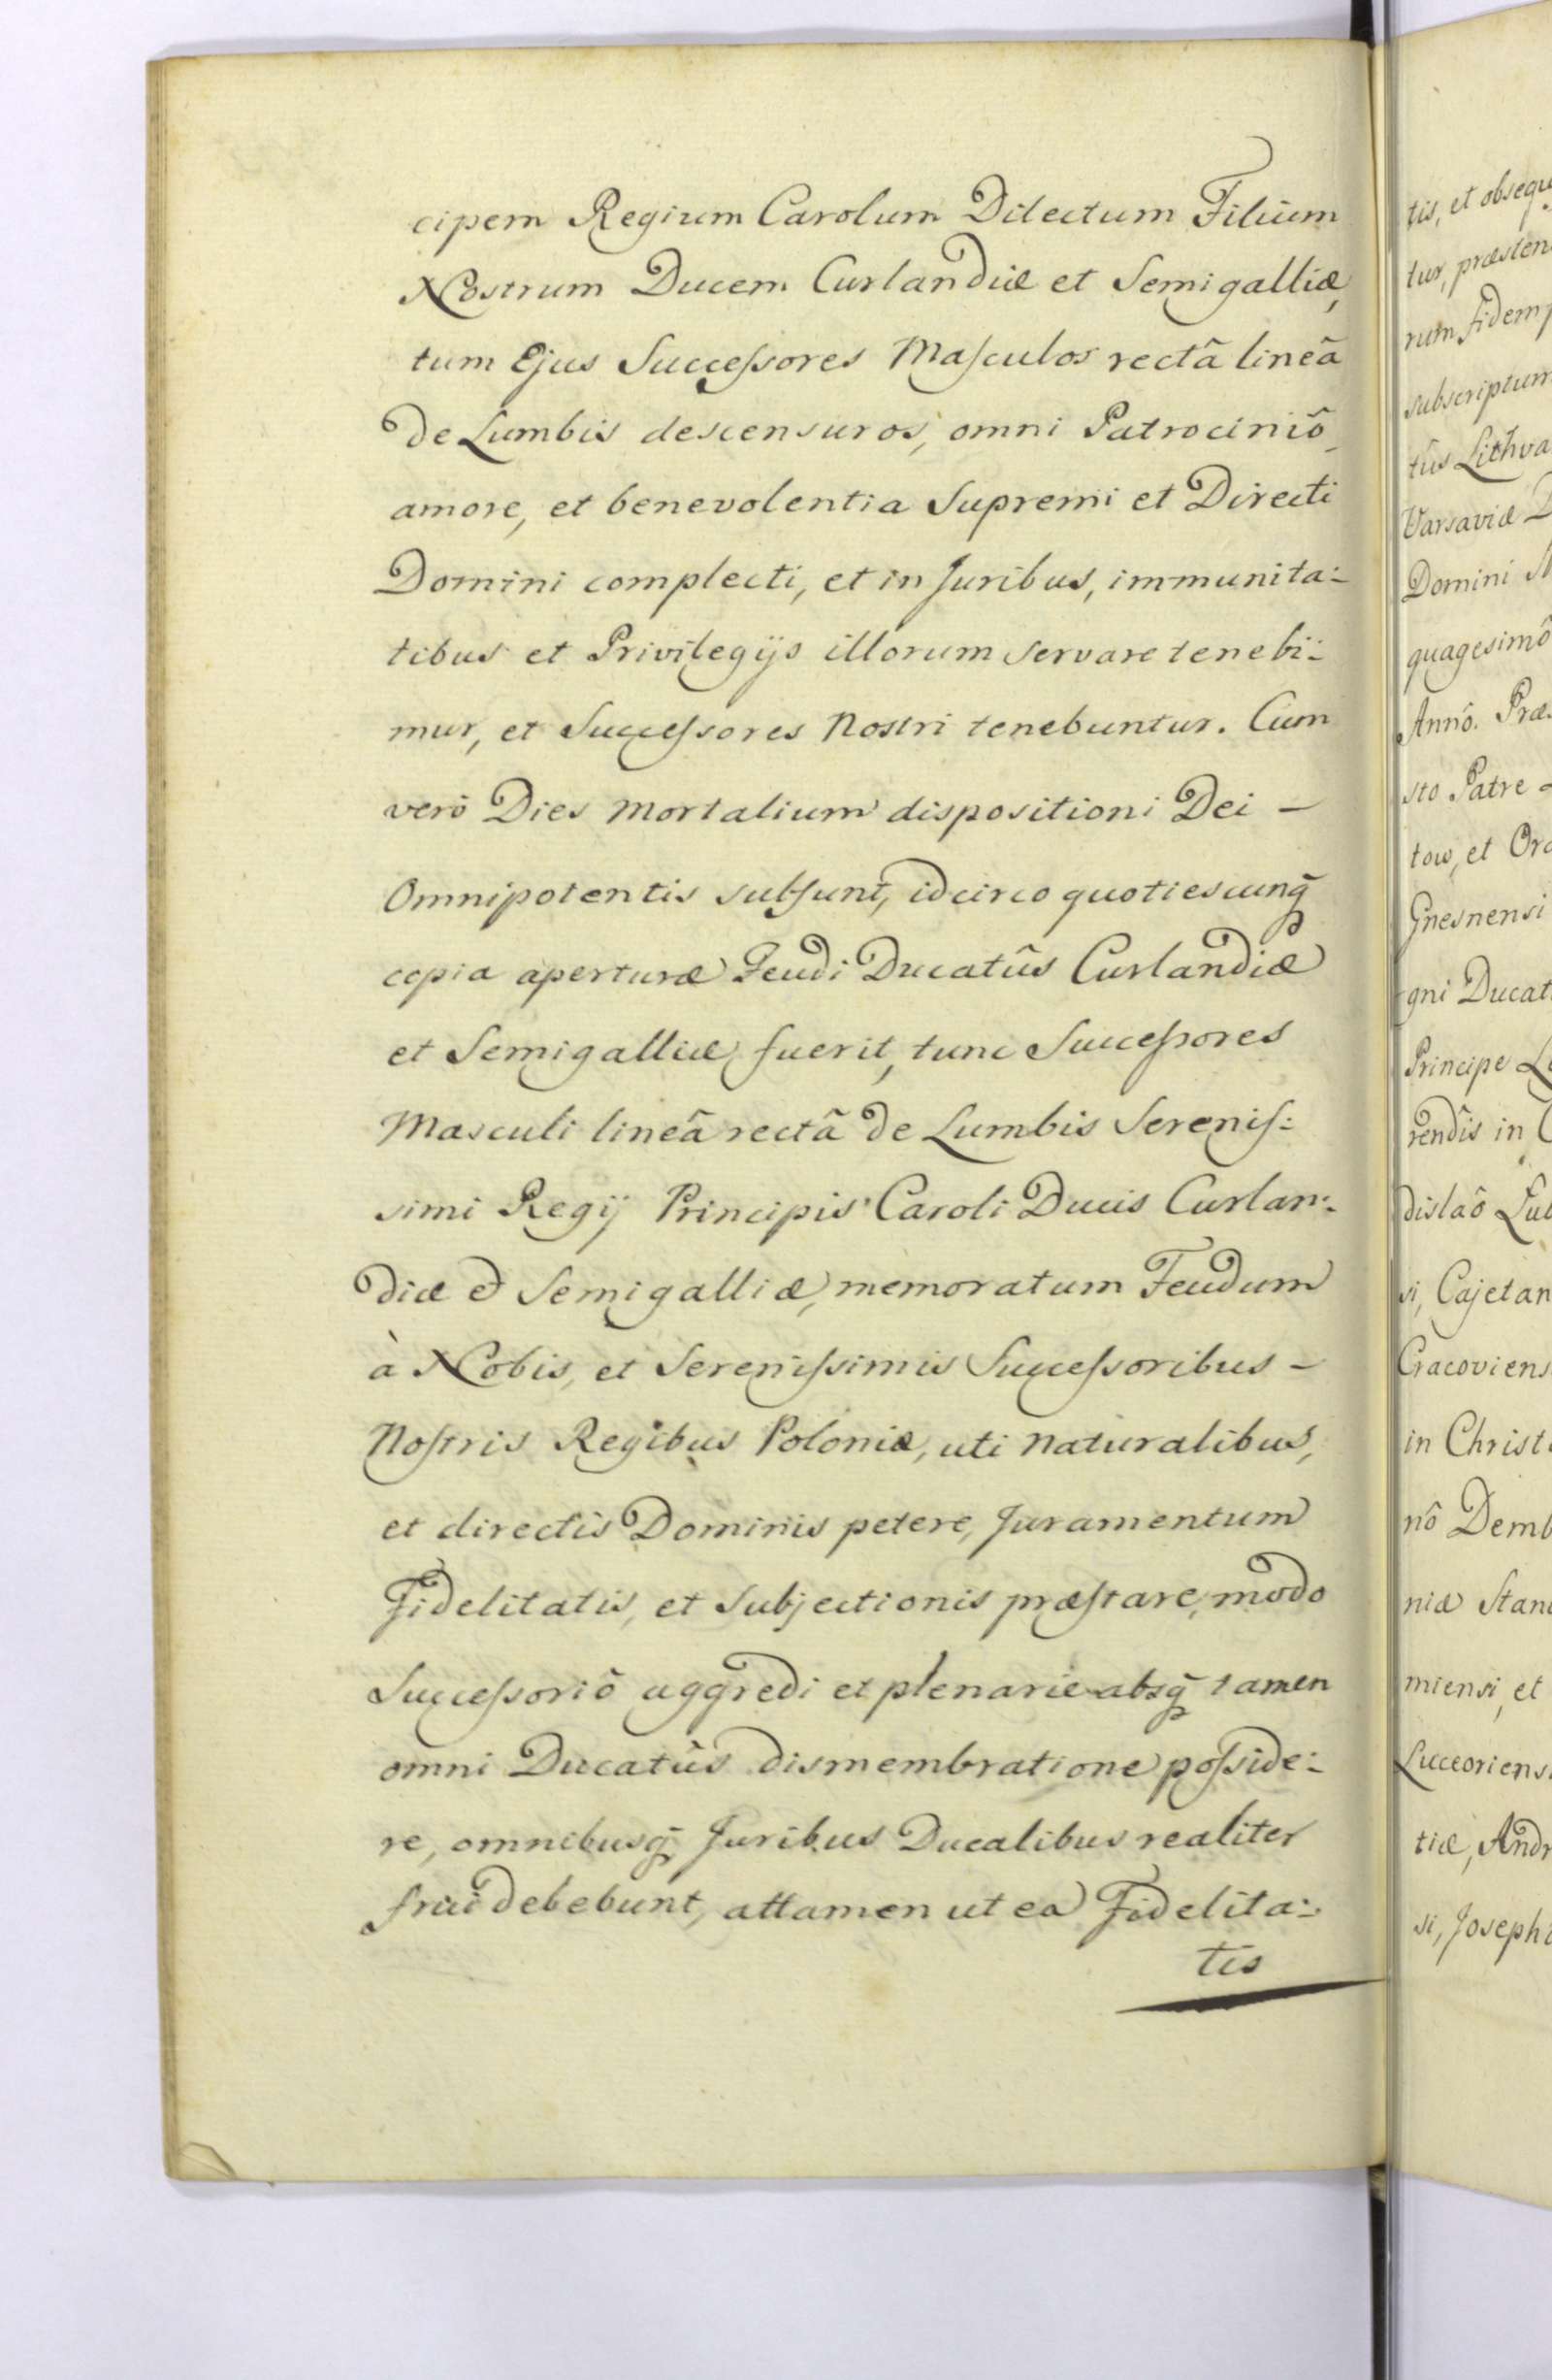 cipem Regium Carolum Dilectum Filium
Nostrum Ducem Curlandiæ et Semigalliæ,
tum Ejus Succeſsores Maſculos rectâ lineâ
de Lumbis descensuros, omni Patrociniô
amore, et benevolentia Supremi et Directi
Domini complecti, et in Juribus, immunita:
tibus et Privilegijs illorum servare tenebi:
mur, et Succeſsores Nostri tenebuntur. Cum
verò Dies Mortalium dispositioni Dei –
Omnipotentis subſunt, idcirco quotiescunq̃
copia aperturæ Feudi Ducatûs Curlandiæ
et Semigalliæ fuerit, tunc Succeſsores
Masculi lineâ rectâ de Lumbis Sereniſ:
simi Regij Principis Caroli Ducis Curlan:
diæ & Semigalliæ, memoratum Feudum
à Nobis, et Sereniſsimis Succeſsoribus –
Noſtris Regibus Poloniæ, uti Naturalibus,
et directis Dominis petere, Juramentum
Fidelitatis, et Subjectionis præſtare, modo
Succeſsoriô aggredi et plenarie absq̃ tamen
omni Ducatûs dismembratione poſside:
re, omnibusq̃ Juribus Ducalibus realiter
frui debebunt, attamen ut ea Fidelita:
tis
tis, et obsequ
tur, præsten
rum fidem
subscriptum
tûs Lithva
Varsaviæ D
Domini M
quagesimô
Annô. Præ
sto Patre
tow, et Or
Gnesnensi
gni Ducat
Principe
rendis in
dislaô Lub
si, Cajetan
Cracoviens
in Christ
nô Demb
niæ Stan
miensi, et
Luceoriens
tiæ, Andr
si, Joseph